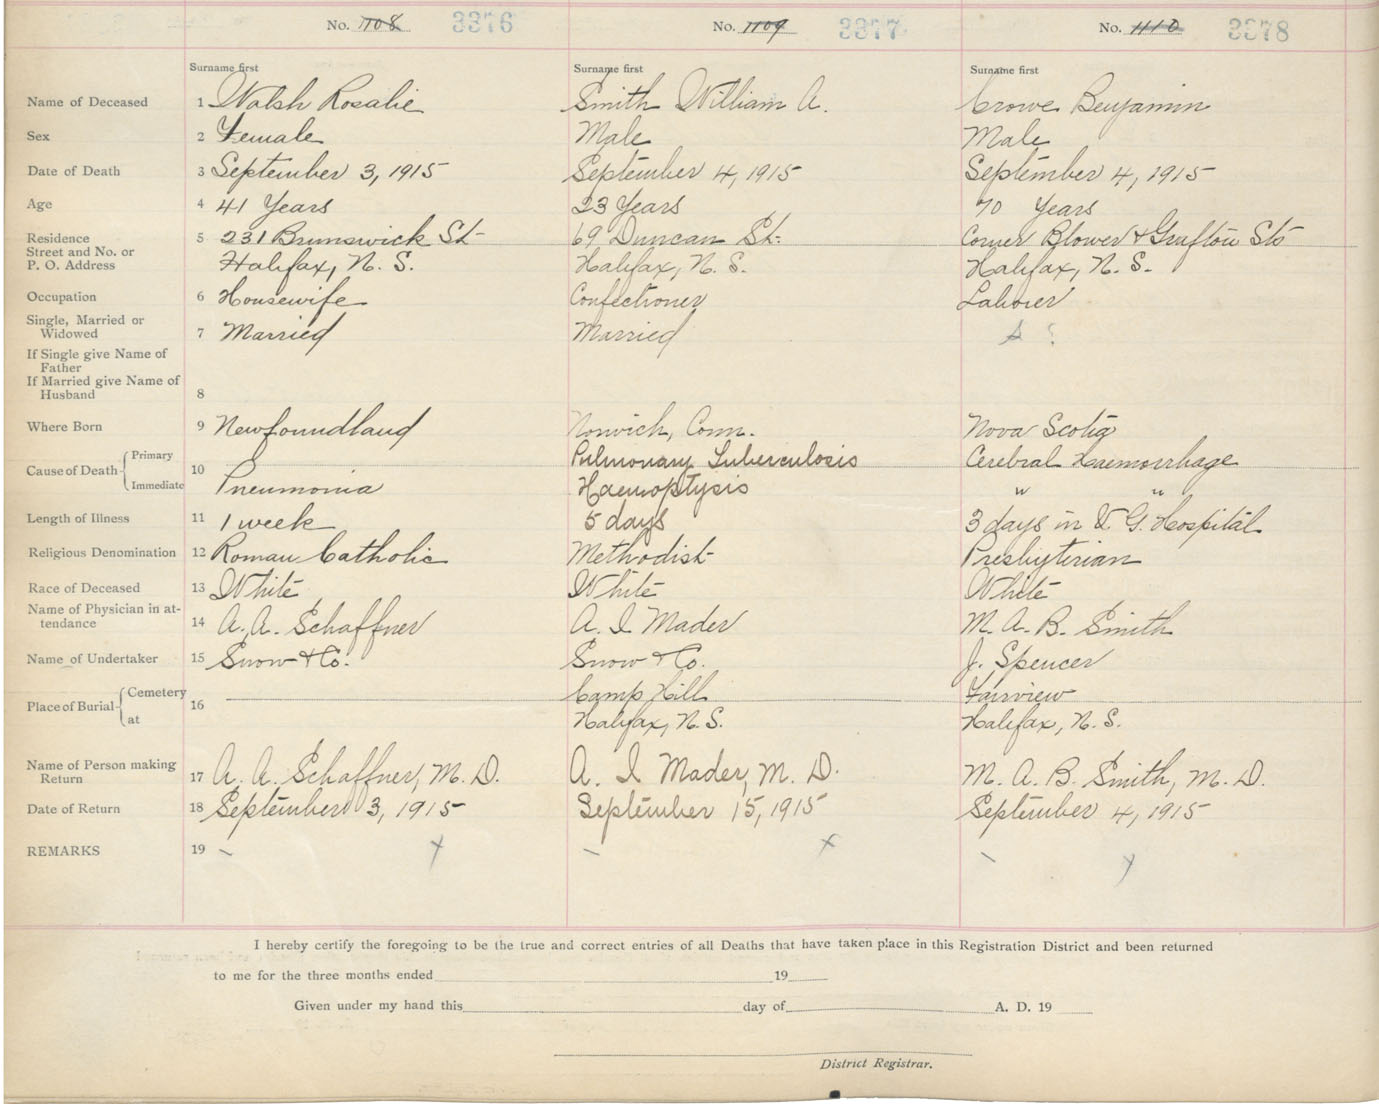 No. 1108 3376 No. 1109 3377 No. 1110 3378
Surname first Surname first Surname first
Name of Deceased 1 Walsh Rosalie Smith William A. Crowe Benjamin
Sex 2 Female Male Male
Date of Death 3 September 3, 1915 September 4, 1915 September 4, 1915
Age 4 41 Years 23 Years 70 Years
Residence 5 231 Brunswick St. 69 Duncan St. Corner Blower & Grafton Sts
Street and No. or
P. O. Address Halifax, N. S. Halifax, N. S. Halifax, N. S.
Occupation 6 Housewife Confectioner Laborer
Single, Married or
Widowed 7 Married Married S ?
If Single give Name of
Father
If Married give Name of
Husband 8
Where Born 9 Newfoundland Norwich, Conn. Nova Scotia
Primary Pulmonary Tuberculosis Cerebral Haemorrhage
Cause of Death 10
Immediate Pneumonia Haemoptysis " "
Length of Illness 11 1 week 5 days 3 days in V. G. Hospital
Religious Denomination 12 Roman Catholic Methodist Presbyterian
Race of Deceased 13 White White White
Name of Physician in at-
tendance 14 A. A. Schaffner A. I Mader M. A. B. Smith
Name of Undertaker 15 Snow & Co. Snow & Co. J. Spencer
Cemetery Camp Hill Fairview
Place of Burial 16
at Halifax, N. S. Halifax, N. S.
Name of Person making
Return 17 A. A. Schaffner, M. D. A. I Mader, M. D. M. A. B. Smith, M. D.
Date of Return 18 September 3, 1915 September 15, 1915 September 4, 1915
REMARKS 19
I hereby certify the foregoing to be the true and correct entries of all Deaths that have taken place in this Registration District and been returned
to me for the three months ended 19
Given under my hand this day of A. D. 19
District Registrar.